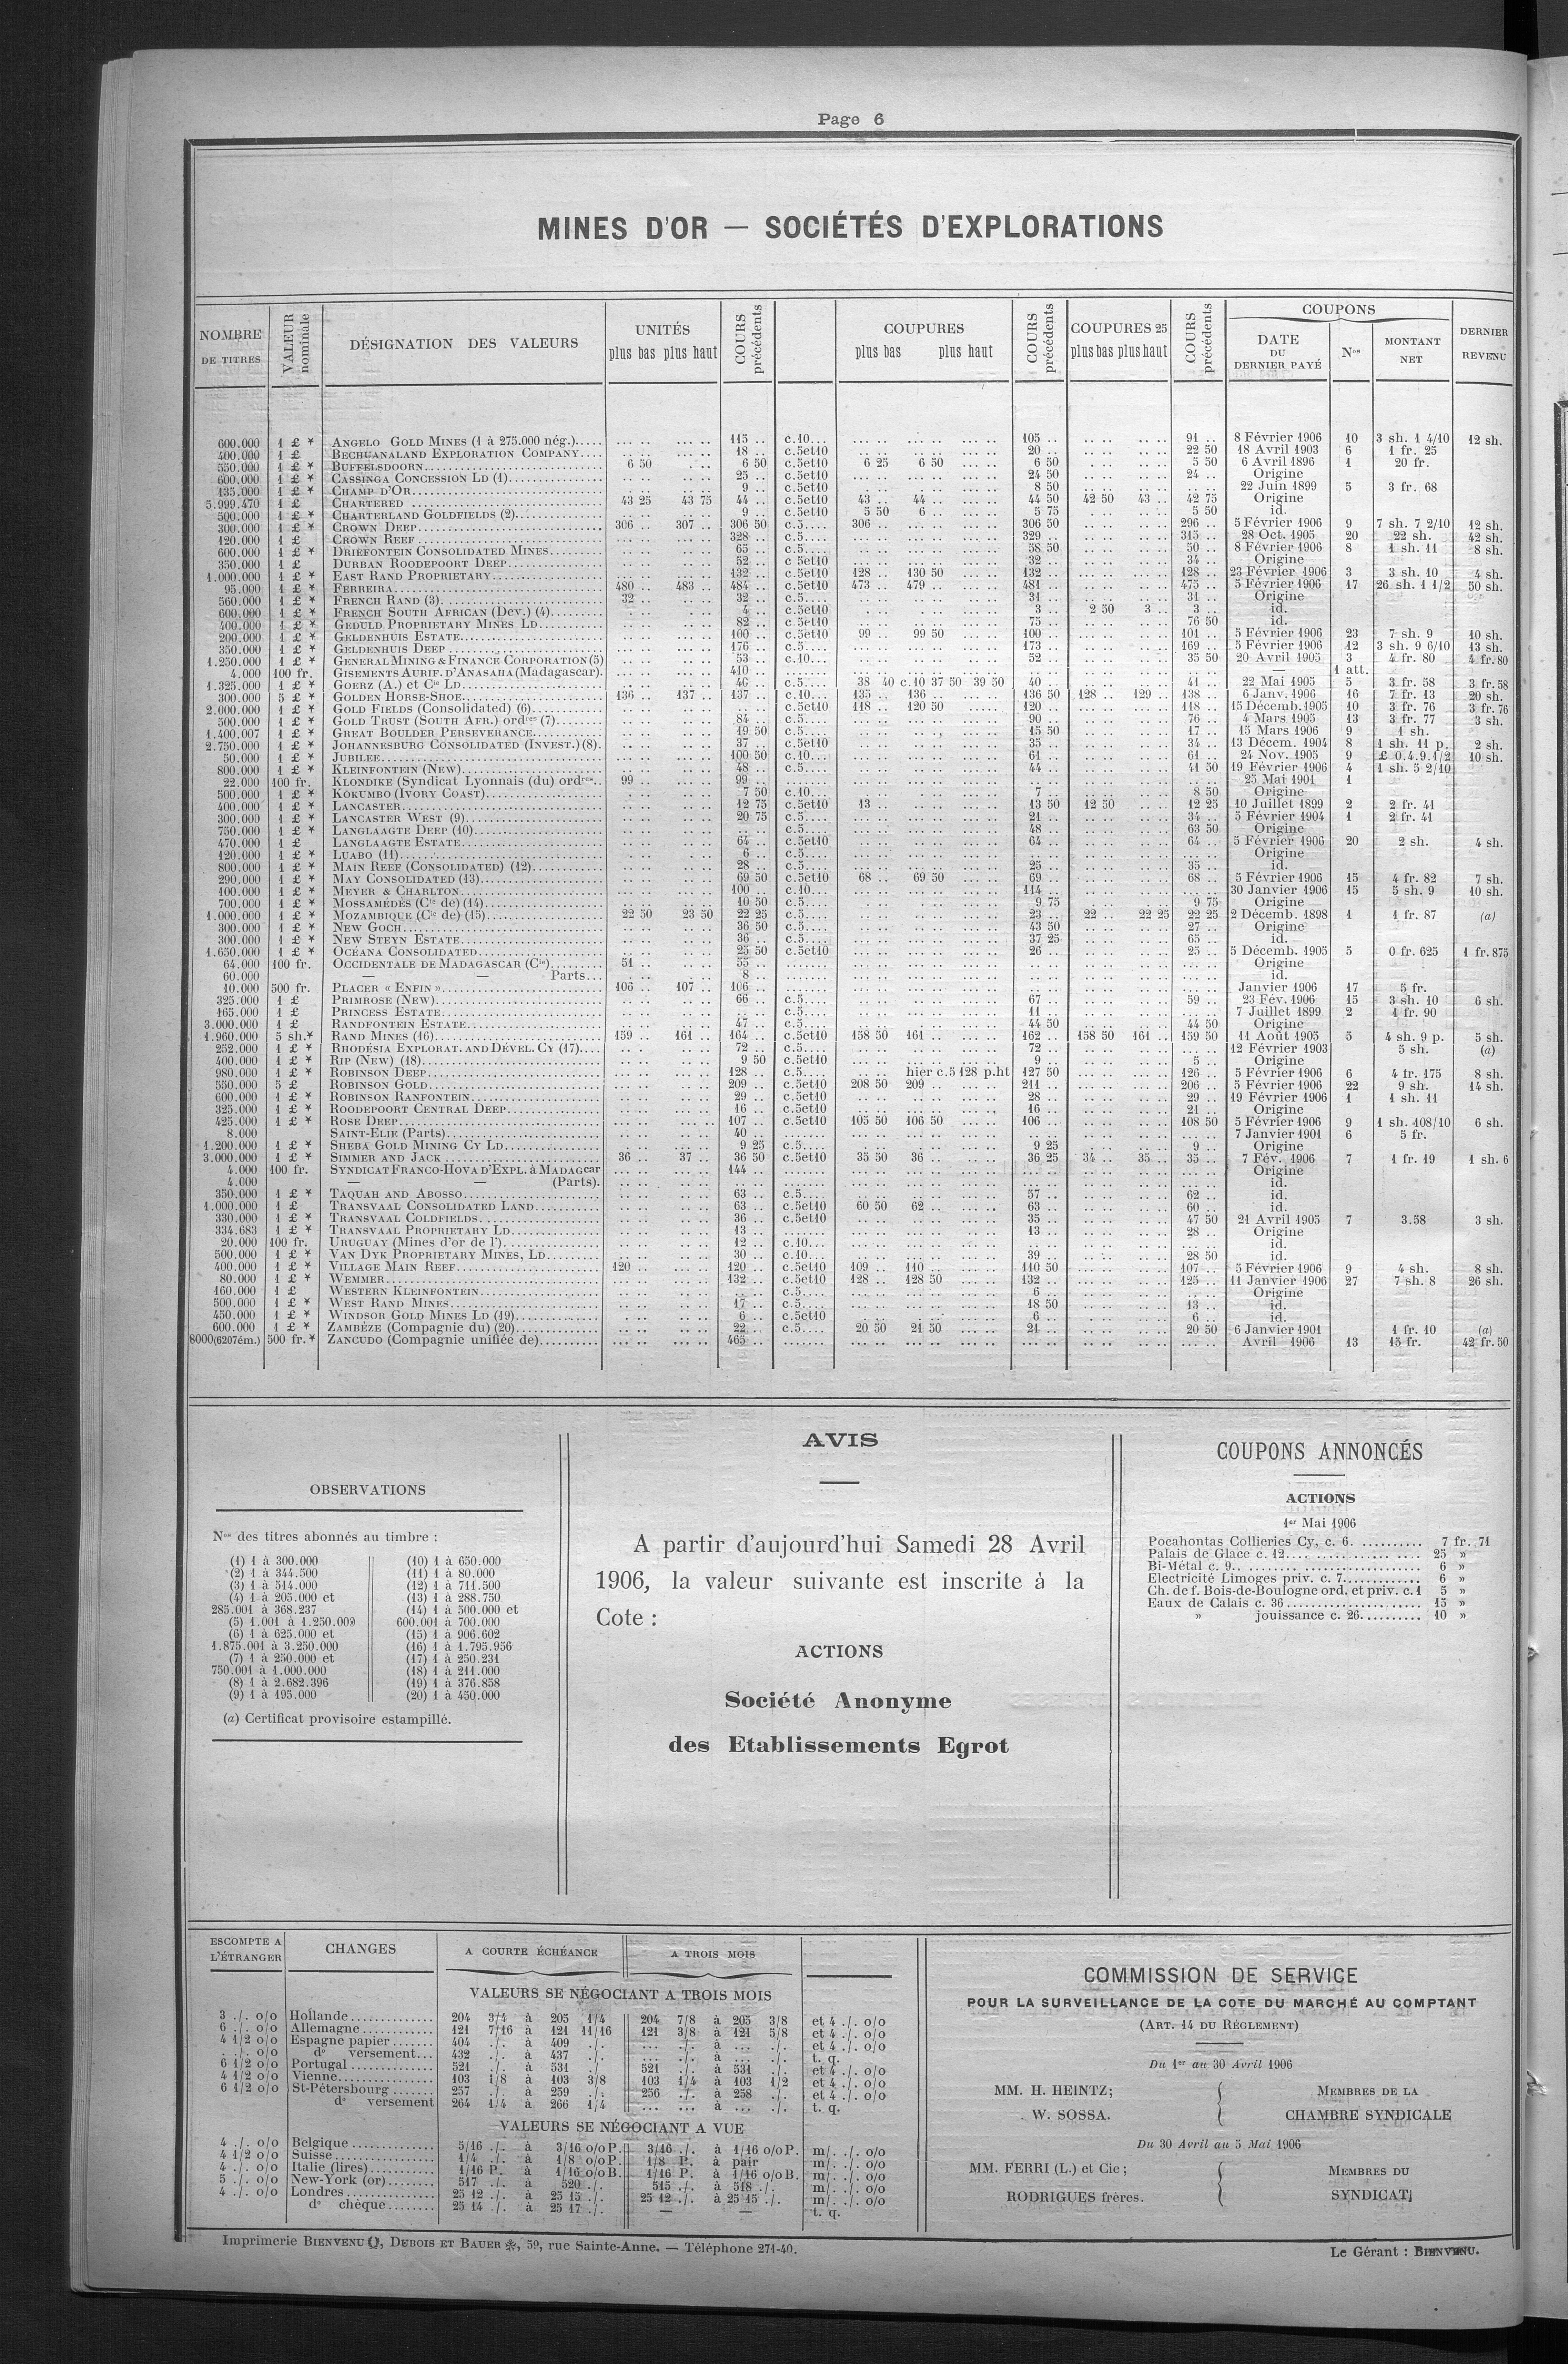 Page 6
MINES D'OR — SOCIÉTÉS D'EXPLORATIONS
NOMBRE DE TITRES | VALEUR nominale | DÉSIGNATION DES VALEURS | UNITÉS plus bas plus haut | COURS précédents | | COUPURES plus bas plus haut | COURS précédents | COUPURES 25 plus bas plus haut | COURS précédents | COUPONS DATE DU DERNIER PAYÉ | Nos | MONTANT NET | DERNIER REVENU
600.000 1 £ * ANGELO GOLD MINES (1 à 275.000 nég.)..... 115 .. c.10... 105 .. 91 .. 8 Février 1906 10 3 sh. 1 4/10 12 sh.
400.000 1 £ BECHUANALAND EXPLORATION COMPANY.... 18 .. c.5et10 20 .. 22 50 18 Avril 1903 6 1 fr. 25
550.000 1 £ * BUFFELSDOORN 6 50 6 50 c.5et10 6 25 6 50 6 50 5 50 6 Avril 1896 1 20 fr.
600.000 1 £ * CASSINGA CONCESSION LD (1) 25 .. c.5et10 24 50 24 .. Origine
135.000 1 £ * CHAMP D'OR 9 .. c.5et10 8 50 22 Juin 1899 5 3 fr. 68
5.999.470 1 £ CHARTERED 43 25 43 75 44 .. c.5et10 43 .. 44 .. 44 50 42 50 43 .. 42 75 Origine
500.000 1 £ * CHARTERLAND GOLDFIELDS (2) 9 .. c.5et10 5 50 6 .. 5 75 5 50 id.
300.000 1 £ * CROWN DEEP 306 .. 307 .. 306 50 c.5.... 306 .. 306 50 296 .. 5 Février 1906 9 7 sh. 7 2/10 12 sh.
120.000 1 £ CROWN REEF 328 .. c.5.... 329 .. 315 .. 28 Oct. 1905 20 22 sh. 42 sh.
600.000 1 £ * DRIEFONTEIN CONSOLIDATED MINES 65 .. c.5.... 58 50 50 .. 8 Février 1906 8 1 sh. 11 8 sh.
350.000 1 £ DURBAN ROODEPOORT DEEP 52 .. c 5et10 32 .. 34 .. Origine
1.000.000 1 £ * EAST RAND PROPRIETARY 132 .. c.5et10 128 .. 130 50 132 .. 128 .. 23 Février 1906 3 3 sh. 10 4 sh.
95.000 1 £ * FERREIRA 480 .. 483 .. 484 .. c.5et10 473 .. 479 .. 481 .. 475 .. 5 Février 1906 17 26 sh. 1 1/2 50 sh.
560.000 1 £ * FRENCH RAND (3) 32 .. 32 .. c.5.... 31 .. 31 .. Origine
600.000 1 £ * FRENCH SOUTH AFRICAN (Dev.) (4) 4 .. c.5et10 3 .. 2 50 3 .. 3 .. id.
400.000 1 £ * GEDULD PROPRIETARY MINES LD 82 .. c.5et10 75 .. 76 50 id.
200.000 1 £ * GELDENHUIS ESTATE 100 .. c.5et10 99 .. 99 50 100 .. 101 .. 5 Février 1906 23 7 sh. 9 10 sh.
350.000 1 £ * GELDENHUIS DEEP 176 .. c.5.... 173 .. 169 .. 5 Février 1906 12 3 sh. 9 6/10 13 sh.
1.250.000 1 £ * GENERAL MINING & FINANCE CORPORATION (5) 53 .. c.10... 52 .. 35 50 20 Avril 1905 3 4 fr. 80 4 fr. 80
4.000 100 fr. GISEMENTS AURIF. D'ANASAHA (Madagascar). 410 .. — 1 att.
1.325.000 1 £ * GOERZ (A.) et Cie LD 46 .. c.5.... 38 40 c.10 37 50 39 50 40 .. 41 .. 22 Mai 1905 5 3 fr. 58 3 fr. 58
300.000 5 £ * GOLDEN HORSE-SHOE 136 .. 137 .. 137 .. c.10... 135 .. 136 .. 136 50 128 .. 129 .. 138 .. 6 Janv. 1906 16 7 fr. 13 20 sh.
2.000.000 1 £ * GOLD FIELDS (Consolidated) (6) c.5et10 118 .. 120 50 120 .. 118 .. 15 Décemb. 1905 10 3 fr. 76 3 fr. 76
500.000 1 £ * GOLD TRUST (SOUTH AFR.) ordres (7) 84 .. c.5.... 90 .. 76 .. 4 Mars 1905 13 3 fr. 77 3 sh.
1.400.007 1 £ * GREAT BOULDER PERSEVERANCE 19 50 c.5.... 15 50 17 .. 15 Mars 1906 9 1 sh.
2.750.000 1 £ * JOHANNESBURG CONSOLIDATED (INVEST.) (8). 37 .. c.5et10 35 .. 34 .. 13 Décem. 1904 8 1 sh. 11 p. 2 sh.
50.000 1 £ * JUBILEE 100 50 c.10... 61 .. 61 .. 24 Nov. 1905 9 £ 0.4.9.1/2 10 sh.
800.000 1 £ * KLEINFONTEIN (NEW) 48 .. c.5.... 44 .. 41 50 19 Février 1906 4 1 sh. 5 2/10
22.000 100 fr. KLONDIKE (Syndicat Lyonnais (du) ordres.. 99 .. 99 .. 25 Mai 1901 1
500.000 1 £ * KOKUMBO (IVORY COAST) 7 50 c.10... 7 .. 8 50 Origine
400.000 1 £ * LANCASTER 12 75 c.5et10 13 .. 13 50 12 50 12 25 10 Juillet 1899 2 2 fr. 41
300.000 1 £ * LANCASTER WEST (9) 20 75 c.5.... 21 .. 34 .. 5 Février 1904 1 2 fr. 41
750.000 1 £ * LANGLAAGTE DEEP (10) c.5.... 48 .. 63 50 Origine
470.000 1 £ LANGLAAGTE ESTATE 64 .. c.5et10 64 .. 64 .. 5 Février 1906 20 2 sh. 4 sh.
120.000 1 £ * LUABO (11) 6 .. c.5.... Origine
800.000 1 £ * MAIN REEF (CONSOLIDATED) (12) 28 .. c.5.... 25 .. 35 .. id.
290.000 1 £ * MAY CONSOLIDATED (13) 69 50 c.5et10 68 .. 69 50 69 .. 68 .. 5 Février 1906 15 4 fr. 82 7 sh.
100.000 1 £ * MEYER & CHARLTON 100 .. c.10... 114 .. 30 Janvier 1906 15 5 sh. 9 10 sh.
700.000 1 £ * MOSSAMÉDÈS (Cie de) (14) 10 50 c.5.... 9 75 9 75 Origine
1.000.000 1 £ * MOZAMBIQUE (Cie de) (15) 22 50 23 50 22 25 c.5.... 23 .. 22 .. 22 25 22 25 2 Décemb. 1898 1 1 fr. 87 (a)
300.000 1 £ * NEW GOCH 36 50 c.5.... 43 50 27 .. Origine
300.000 1 £ * NEW STEYN ESTATE 36 .. c.5.... 37 25 65 .. id.
1.650.000 1 £ * OCEANA CONSOLIDATED 25 50 c.5et10 26 .. 25 .. 5 Décemb. 1905 5 0 fr. 625 1 fr. 875
64.000 100 fr. OCCIDENTALE DE MADAGASCAR (Cie) 51 .. 55 .. Origine
60.000 — — Parts... 8 .. id.
10.000 500 fr. PLACER « ENFIN » 106 .. 107 .. 106 .. Janvier 1906 17 5 fr.
325.000 1 £ PRIMROSE (NEW) 66 .. c.5.... 67 .. 59 .. 23 Fév. 1906 15 3 sh. 10 6 sh.
165.000 1 £ PRINCESS ESTATE c.5.... 11 .. 7 Juillet 1899 2 1 fr. 90
3.000.000 1 £ RANDFONTEIN ESTATE 47 .. c.5.... 44 50 44 50 Origine
1.960.000 5 sh.* RAND MINES (16) 159 .. 161 .. 164 .. c.5et10 158 50 161 .. 162 .. 158 50 161 .. 159 50 11 Août 1905 5 4 sh. 9 p. 5 sh.
252.000 1 £ * RHODÉSIA EXPLORAT. AND DÉVEL. CY (17).... 72 .. c.5.... 72 .. 12 Février 1903 5 sh. (a)
400.000 1 £ * RIP (NEW) (18) 9 50 c.5et10 9 .. 5 .. Origine
980.000 1 £ * ROBINSON DEEP 128 .. c.5.... hier c.5 128 p.ht 127 50 126 .. 5 Février 1906 6 4 fr. 175 8 sh.
550.000 5 £ ROBINSON GOLD 209 .. c.5et10 208 50 209 .. 211 .. 206 .. 5 Février 1906 22 9 sh. 14 sh.
600.000 1 £ * ROBINSON RANFONTEIN 29 .. c.5et10 28 .. 29 .. 19 Février 1906 1 1 sh. 11
325.000 1 £ * ROODEPOORT CENTRAL DEEP 16 .. c.5et10 16 .. 21 .. Origine
425.000 1 £ * ROSE DEEP 107 .. c.5et10 105 50 106 50 106 .. 108 50 5 Février 1906 9 1 sh. 408/10 6 sh.
8.000 SAINT-ELIE (Parts) 40 .. 7 Janvier 1901 6 5 fr.
1.200.000 1 £ * SHEBA GOLD MINING CY LD 9 25 c.5.... 9 25 9 .. Origine
3.000.000 1 £ * SIMMER AND JACK 36 .. 37 .. 36 50 c.5et10 35 50 36 .. 36 25 34 .. 35 .. 35 .. 7 Fév. 1906 7 1 fr. 19 1 sh. 6
4.000 100 fr. SYNDICAT FRANCO-HOVA D'EXPL. à MADAGcar 144 .. Origine
4.000 — — (Parts). id.
350.000 1 £ * TAQUAH AND ABOSSO 63 .. c.5.... 57 .. 62 .. id.
1.000.000 1 £ TRANSVAAL CONSOLIDATED LAND 63 .. c.5et10 60 50 62 .. 63 .. 60 .. id.
330.000 1 £ * TRANSVAAL COLDFIELDS 36 .. c.5et10 35 .. 47 50 21 Avril 1905 7 3.58 3 sh.
334.683 1 £ * TRANSVAAL PROPRIETARY LD 13 .. 13 .. 28 .. Origine
20.000 100 fr. URUGUAY (Mines d'or de l') 12 .. c.10... id.
500.000 1 £ * VAN DYK PROPRIETARY MINES, LD 30 .. c.10... 39 .. 28 50 id.
400.000 1 £ * VILLAGE MAIN REEF 120 .. 120 .. c.5et10 109 .. 110 .. 110 50 107 .. 5 Février 1906 9 4 sh. 8 sh.
80.000 1 £ * WEMMER 132 .. c.5et10 128 .. 128 50 132 .. 125 .. 11 Janvier 1906 27 7 sh. 8 26 sh.
160.000 1 £ WESTERN KLEINFONTEIN c.5.... 6 .. Origine
500.000 1 £ * WEST RAND MINES 17 .. c.5.... 18 50 13 .. id.
450.000 1 £ * WINDSOR GOLD MINES LD (19) 6 .. c.5et10 6 .. 6 .. id.
600.000 1 £ * ZAMBÈZE (Compagnie du) (20) 22 .. c.5.... 20 50 21 50 21 .. 20 50 6 Janvier 1901 1 fr. 10 (a)
8000(6207ém.) 500 fr.* ZANCUDO (Compagnie unifiée de) 465 .. Avril 1906 13 15 fr. 42 fr. 50
OBSERVATIONS
Nos des titres abonnés au timbre :
(1) 1 à 300.000
(2) 1 à 344.500
(3) 1 à 514.000
(4) 1 à 205.000 et
285.001 à 368.237
(5) 1.001 à 1.250.000
(6) 1 à 625.000 et
1.875.001 à 3.250.000
(7) 1 à 250.000 et
750.001 à 1.000.000
(8) 1 à 2.682.396
(9) 1 à 195.000
(10) 1 à 650.000
(11) 1 à 80.000
(12) 1 à 711.500
(13) 1 à 288.750
(14) 1 à 500.000 et
600.001 à 700.000
(15) 1 à 906.602
(16) 1 à 1.795.956
(17) 1 à 250.231
(18) 1 à 211.000
(19) 1 à 376.858
(20) 1 à 450.000
(a) Certificat provisoire estampillé.
AVIS
A partir d'aujourd'hui Samedi 28 Avril
1906, la valeur suivante est inscrite à la
Cote :
ACTIONS
Société Anonyme
des Etablissements Egrot
COUPONS ANNONCÉS
ACTIONS
1er Mai 1906
Pocahontas Collieries Cy, c. 6. .......... 7 fr. 71
Palais de Glace c. 12.... 25 »
Bi-Métal c. 9.. 6 »
Electricité Limoges priv. c. 7............ 6 »
Ch. de f. Bois-de-Boulogne ord. et priv. c.1 5 »
Eaux de Calais c. 36 15 »
» jouissance c. 26.......... 10 »
ESCOMPTE A L'ÉTRANGER | CHANGES | A COURTE ÉCHÉANCE | A TROIS MOIS
VALEURS SE NÉGOCIANT A TROIS MOIS
3 ./. o/o Hollande 204 3/4 à 205 1/4 204 7/8 à 205 3/8 et 4 ./. o/o
6 ./. o/o Allemagne 121 7/16 à 121 11/16 121 3/8 à 121 5/8 et 4 ./. o/o
4 1/2 o/o Espagne papier 404 ./. à 409 ./. ... ./. à ... ./. et 4 ./. o/o
. ./. o/o do versement... 432 ./. à 437 ./. ... ./. à ... ./. t. q.
6 1/2 o/o Portugal 521 ./. à 531 ./. 521 ./. à 531 ./. et 4 ./. o/o
4 1/2 o/o Vienne 103 1/8 à 103 3/8 103 1/4 à 103 1/2 et 4 ./. o/o
6 1/2 o/o St-Pétersbourg 257 ./. à 259 ./. 256 ./. à 258 ./. et 4 ./. o/o
do versement 264 1/4 à 266 1/4 ... à ... ./. t. q.
VALEURS SE NÉGOCIANT A VUE
4 ./. o/o Belgique 5/16 ./. à 3/16 o/o P. 3/16 ./. à 1/16 o/o P. m/. ./. o/o
4 1/2 o/o Suisse 1/4 ./. à 1/8 o/o P. 1/8 P. à pair m/. ./. o/o
4 ./. o/o Italie (lires) 1/16 P. à 1/16 o/o B. 1/16 P. à 1/16 o/o B. m/. ./. o/o
5 ./. o/o New-York (or) 517 ./. à 520 ./. 515 ./. à 518 ./. m/. ./. o/o
4 ./. o/o Londres 25 12 ./. à 25 15 ./. 25 12 ./. à 25 15 ./. m/. ./. o/o
do chèque 25 14 ./. à 25 17 ./. — — t. q.
COMMISSION DE SERVICE
POUR LA SURVEILLANCE DE LA COTE DU MARCHÉ AU COMPTANT
(ART. 14 DU RÈGLEMENT)
Du 1er au 30 Avril 1906
MM. H. HEINTZ; MEMBRES DE LA
W. SOSSA. CHAMBRE SYNDICALE
Du 30 Avril au 5 Mai 1906
MM. FERRI (L.) et Cie; MEMBRES DU
RODRIGUES frères. SYNDICAT
Imprimerie BIENVENU, DUBOIS ET BAUER, 59, rue Sainte-Anne. — Téléphone 271-40.
Le Gérant : BIENVENU.